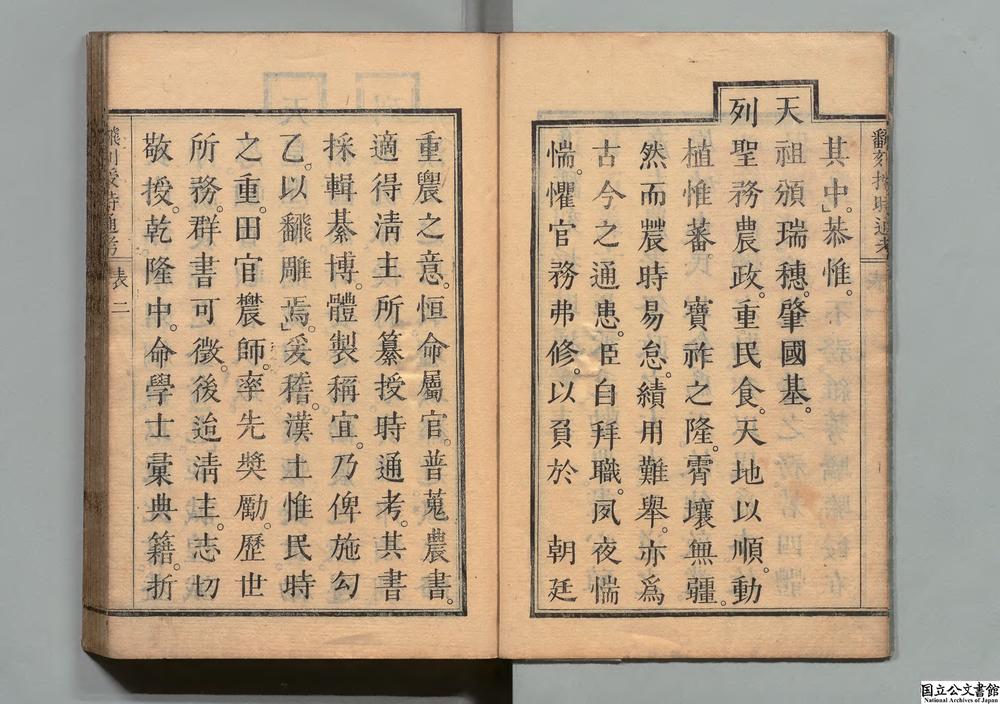 其中。恭惟。
天祖頒瑞穗。肇國基。
列聖務農政。重民食。天地以順。動
植惟蕃。寶祚之隆。霄壤無疆。
然而農時易怠。績用難舉。亦爲
古今之通患。臣自拜職。夙夜惴
惴。懼官務弗修。以負於朝廷
重農之意。恒命屬官。普蒐農書。
適得淸主所纂授時通考。其書
採輯綦博。體製稱宜。乃俾施勾
乙。以飜雕焉。爰稽。漢土惟民時
之重。田官農師。率先奬勵。歷世
所務。群書可徵。後迨淸主。志切
敬授。乾隆中。命學士彙典籍。折
飜刻授時通考
表二
国立公文書館
National Archives of Japan